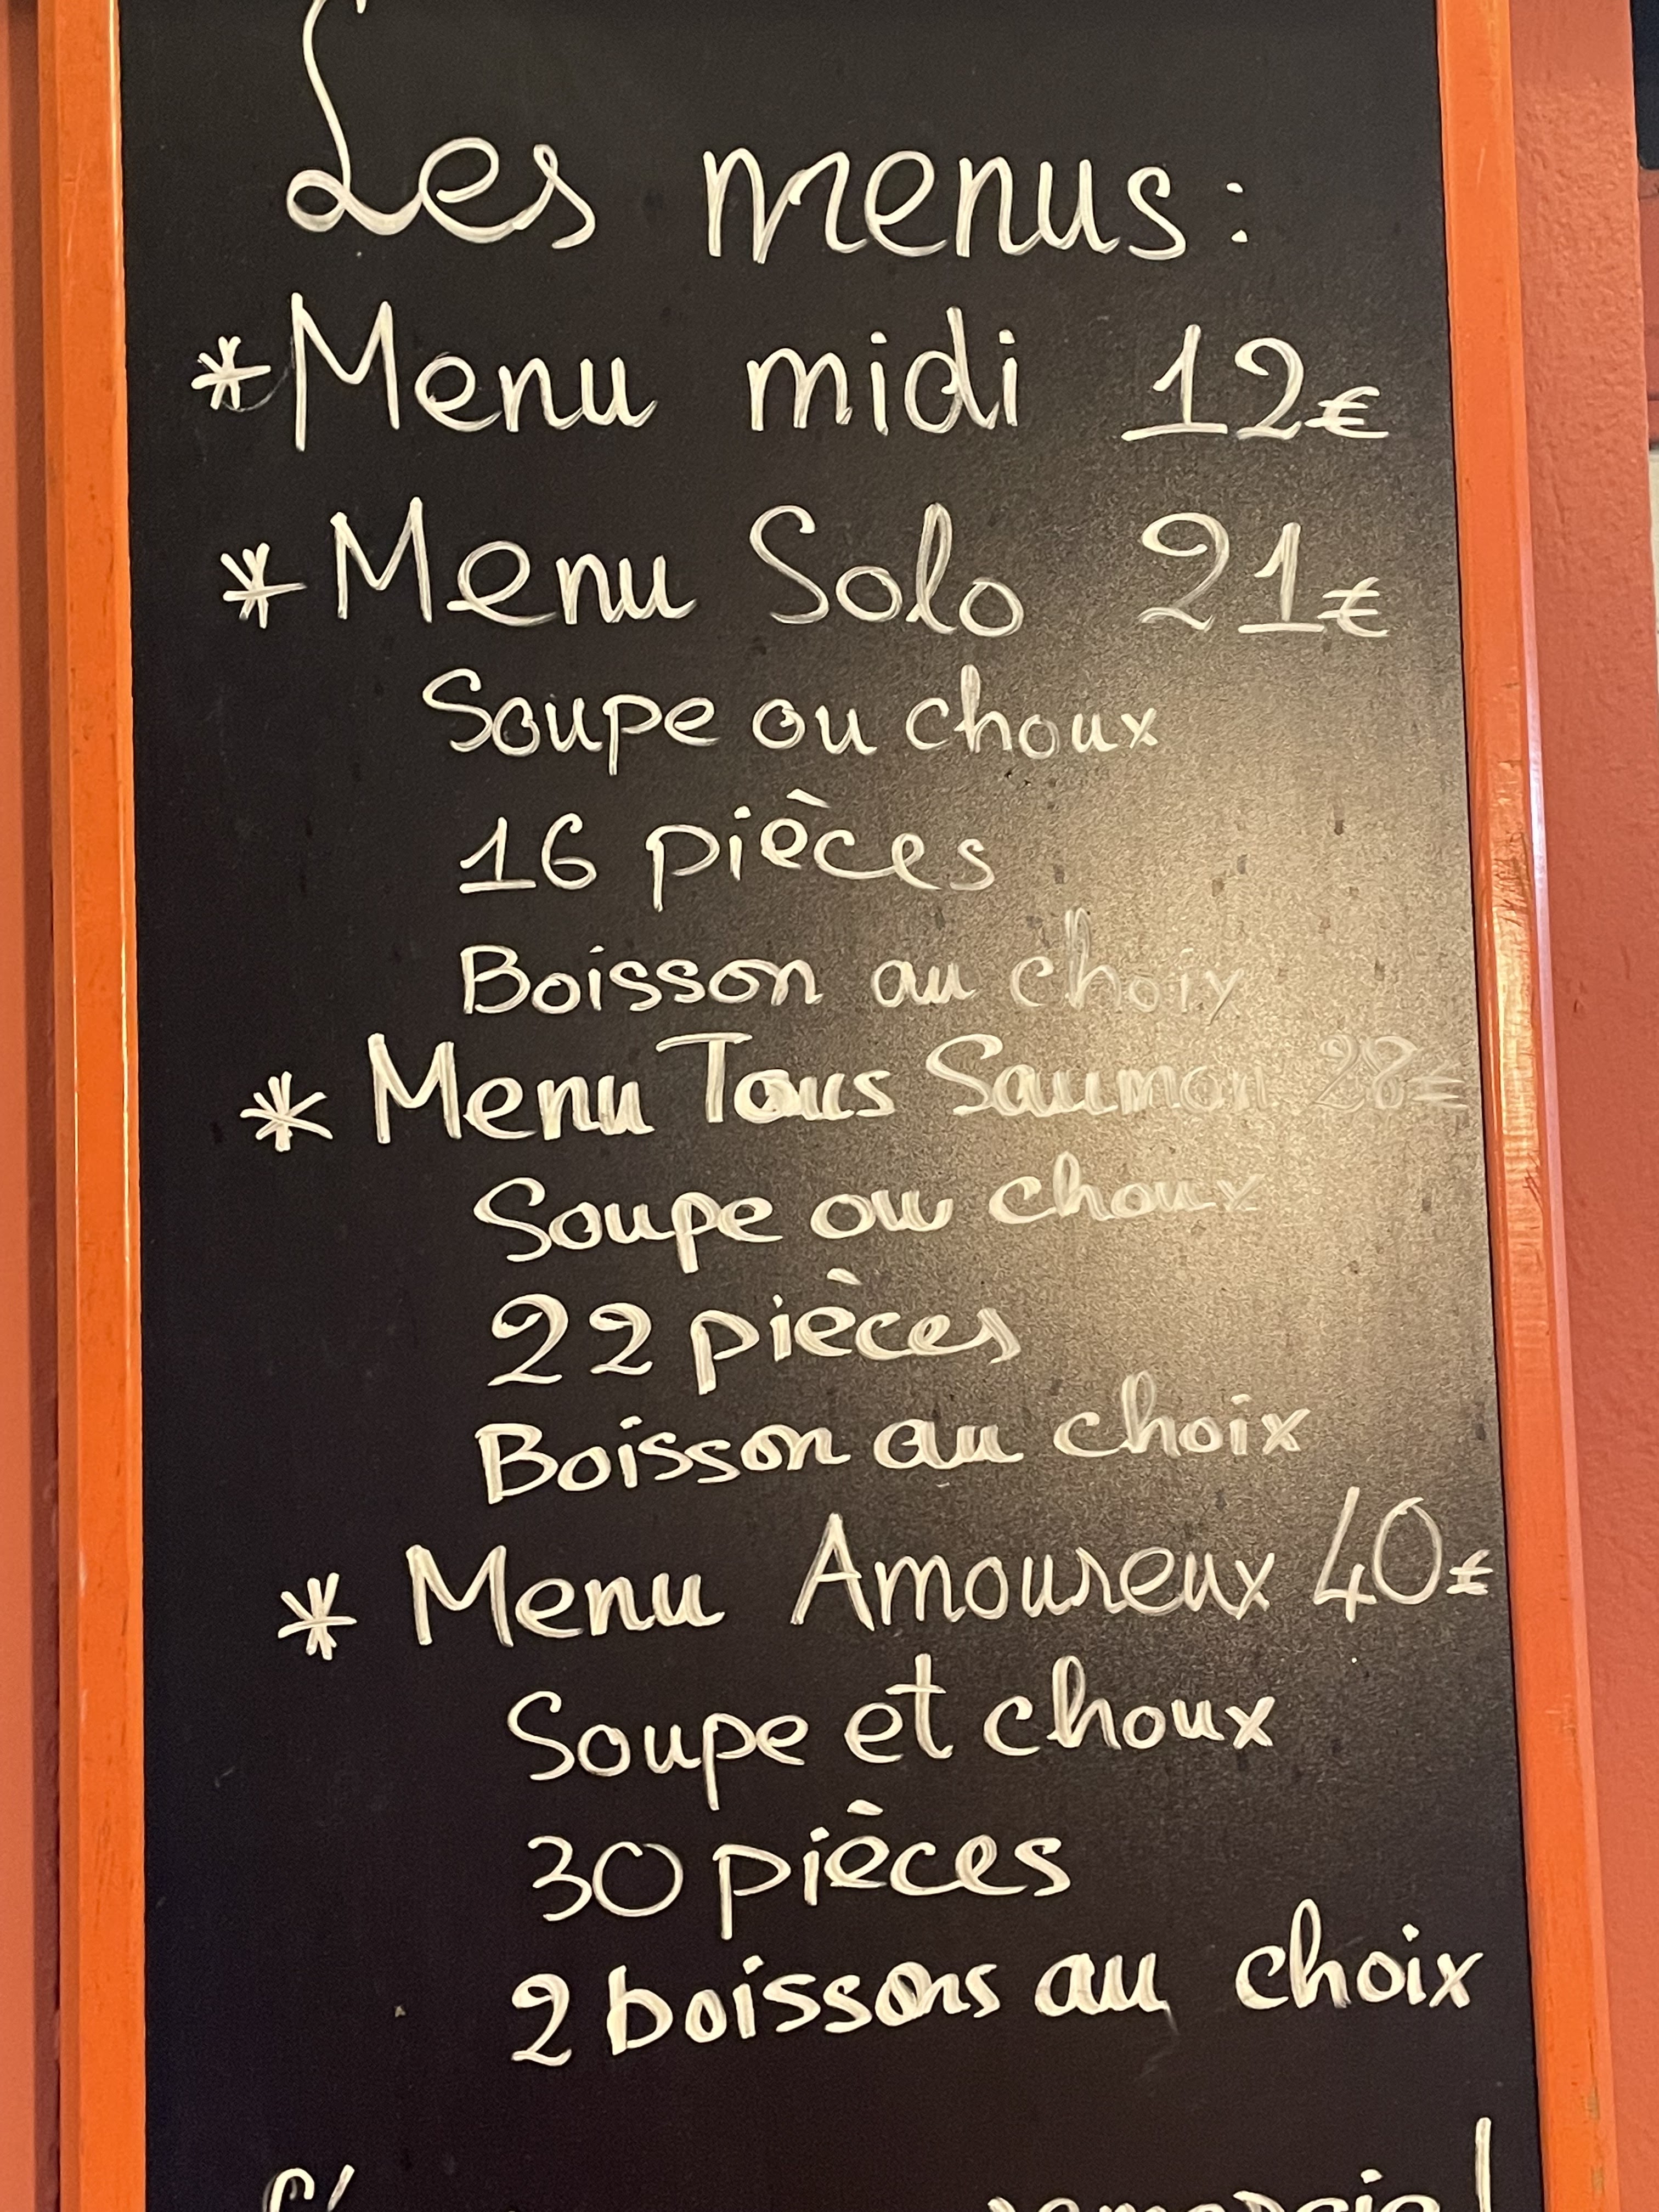 Les menus :
*Menu midi 12€
*Menu Solo 21€
Soupe ou choux
16 pièces
Boisson au choix
* Menu Tous Saumon 28€
Soupe ou choux
22 pièces
Boisson au choix
* Menu Amoureux 40€
Soupe et choux
30 pièces
2 boissons au choix